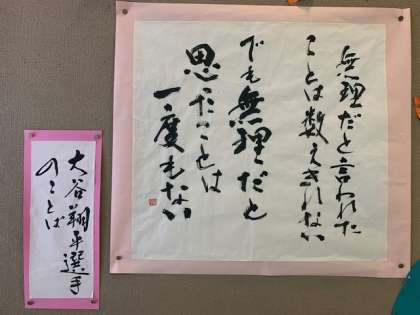 無理だと言われた
ことは数えきれない
でも無理だと
思ったことは
一度もない
大谷翔平選手
のことば